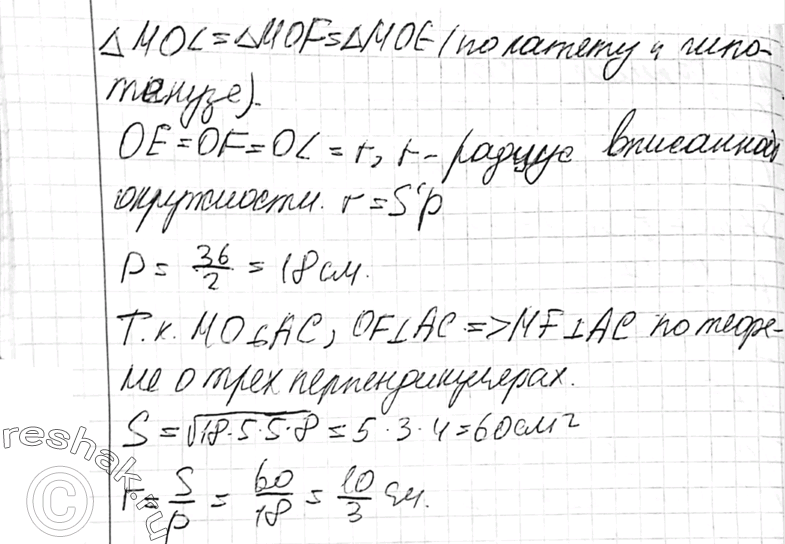 △MOL=△MOF=△MOE (по катету и гипо-
тенузе).
OE=OF=OL=r, r- радиус вписанной
окружности. r=S:p
P= 36/2 = 18 см.
Т.к. MO⊥AC, OF⊥AC =>MF⊥AC по теоре-
ме о трех перпендикулярах.
S=√18·5·5·8 = 5·3·4=60см2
r= S/p = 60/18 = 10/3 см.
reshak.ru
©